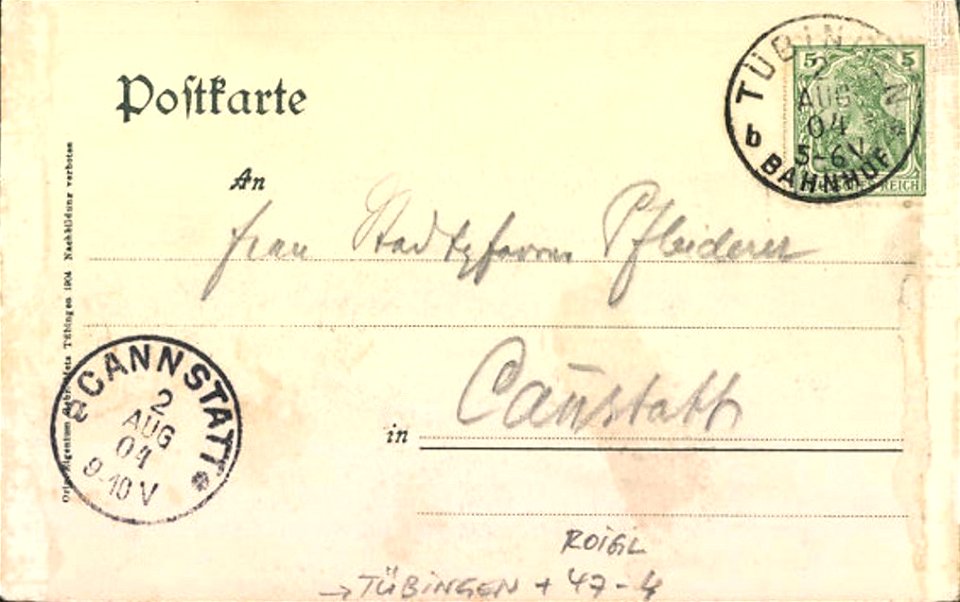 Postkarte
TÜBINGEN
2
AUG
04
5-6 V
b BAHNHOF
5 5
REICH
An
Frau Stadtpfarrer Pfleiderer
in Cannstatt
a CANNSTATT
2
AUG
04
9-10 V
Metz Tübingen 1904 Nachbildung verboten
ROIGL
→ TÜBINGEN + 47-4